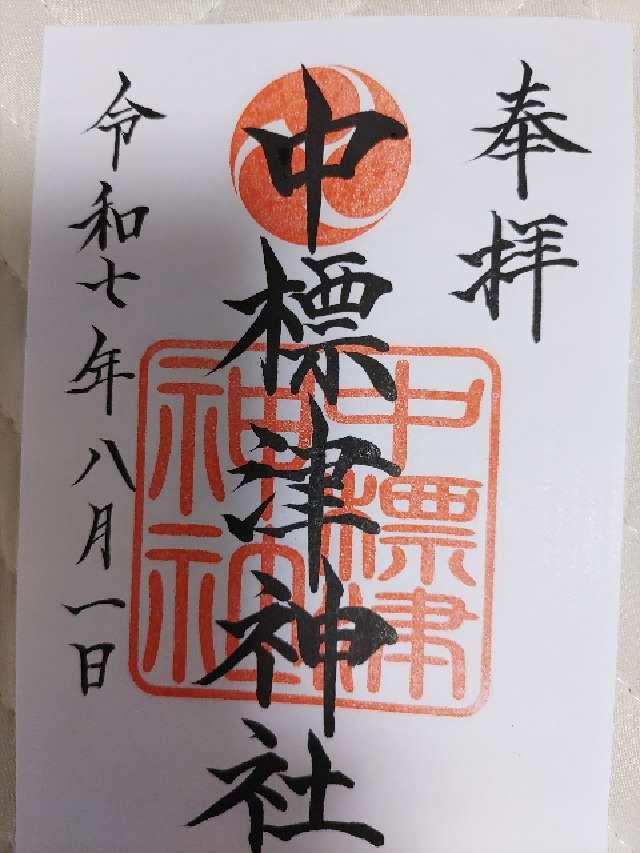 奉拝
中標津神社
中標津
神社
令和七年八月一日